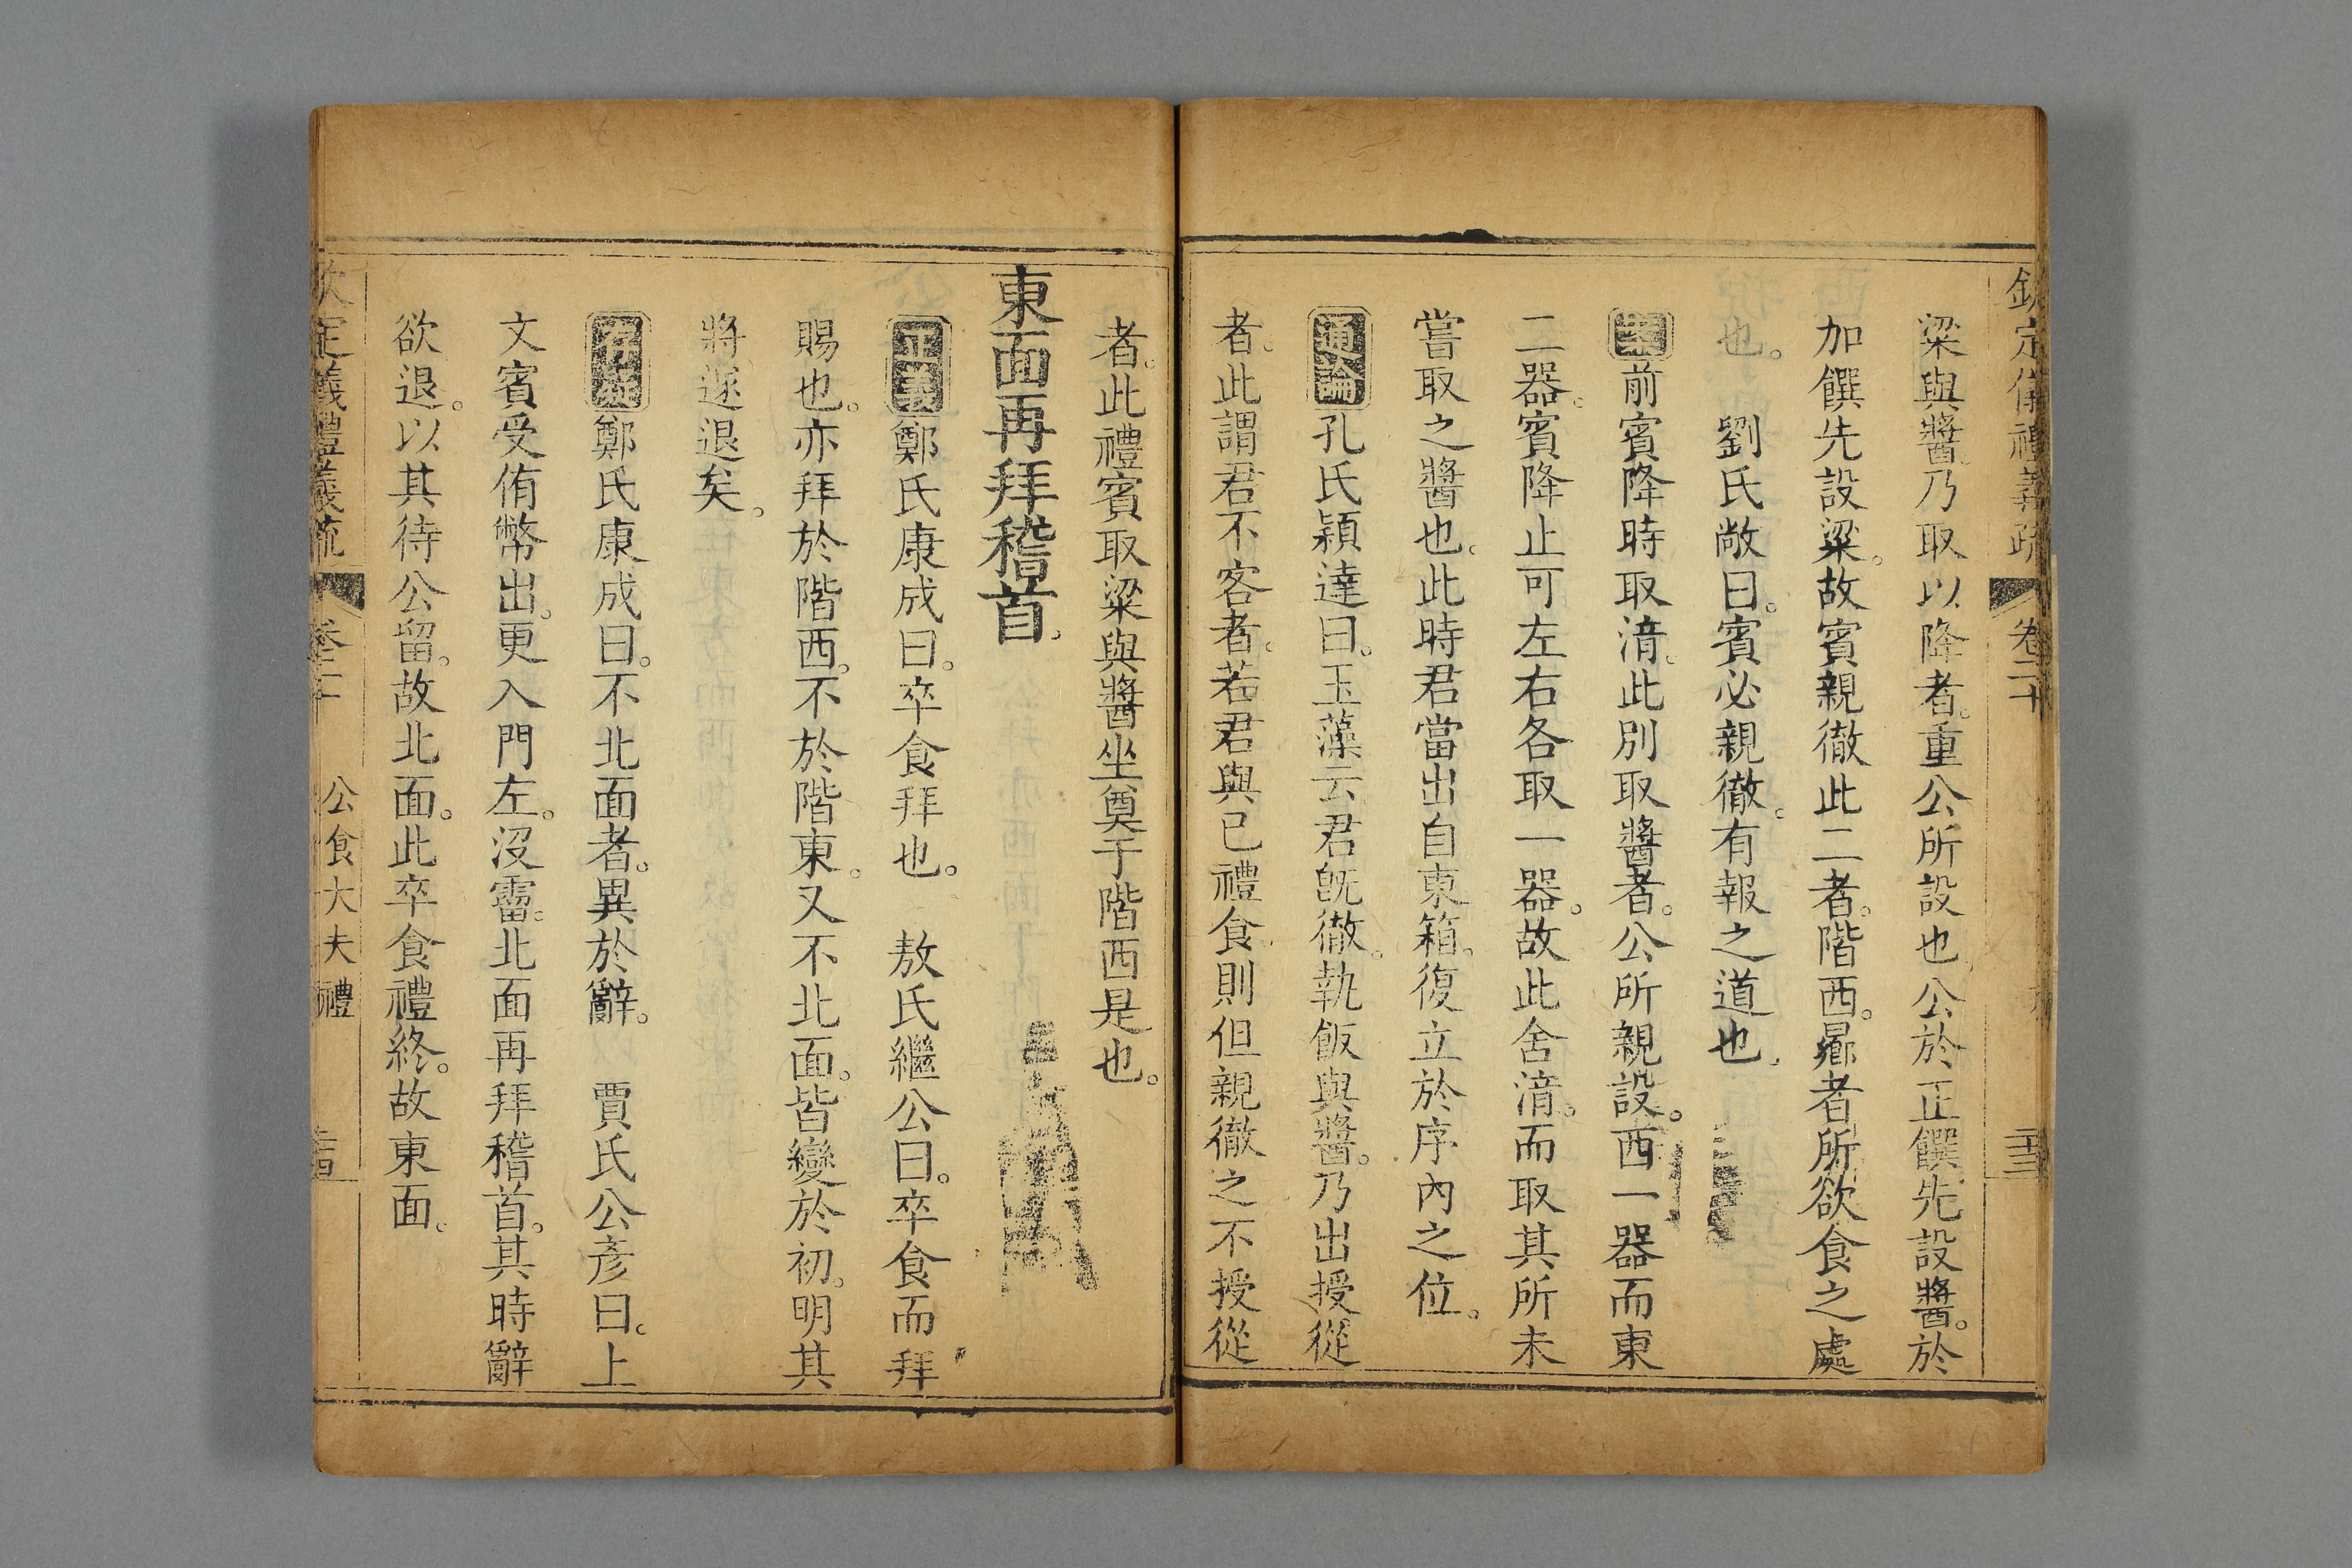 欽定儀禮義疏 卷二十 二十三
粱與醬乃取以降者。重公所設也。公於正饌先設醬。於
加饌先設粱。故賓親徹此二者。階西。曏者所欲食之處
也。　劉氏敞曰。賓必親徹。有報之道也。
案前賓降時取湇。此別取醬者。公所親設。西一器而東
二器。賓降止可左右各取一器。故此舍湇。而取其所未
嘗取之醬也。此時君當出自東箱。復立於序內之位。
通論孔氏穎達曰。玉藻云君旣徹。執飯與醬。乃出授從
者。此謂君不客者。若君與已禮食。則但親徹之不授從
者。此禮賓取粱與醬坐奠于階西是也。
東面再拜稽首。
正義鄭氏康成曰。卒食拜也。　敖氏繼公曰。卒食而拜
賜也。亦拜於階西。不於階東。又不北面。皆變於初。明其
將遂退矣。
存疑鄭氏康成曰。不北面者。異於辭。　賈氏公彥曰。上
文賓受侑幣出。更入門左。沒霤。北面再拜稽首。其時辭
欲退。以其待公留。故北面。此卒食禮終。故東面。
欽定儀禮義疏 卷二十 公食大夫禮